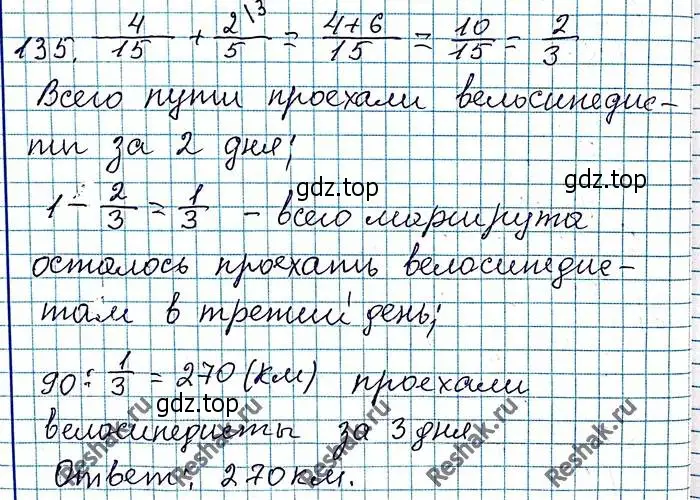 135. 4/15 + 2\3/5 = 4+6/15 = 10/15 = 2/3
Всего пути проехали велосипедис-
ты за 2 дня;
gdz.top
1 - 2/3 = 1/3 - всего маршрута
осталось проехать велосипедис-
там в третий день;
90 : 1/3 = 270 (км) проехали
gdz.top
велосипедисты за 3 дня
Ответ: 270 км.
Reshak.ru
Reshak.ru
Reshak.ru